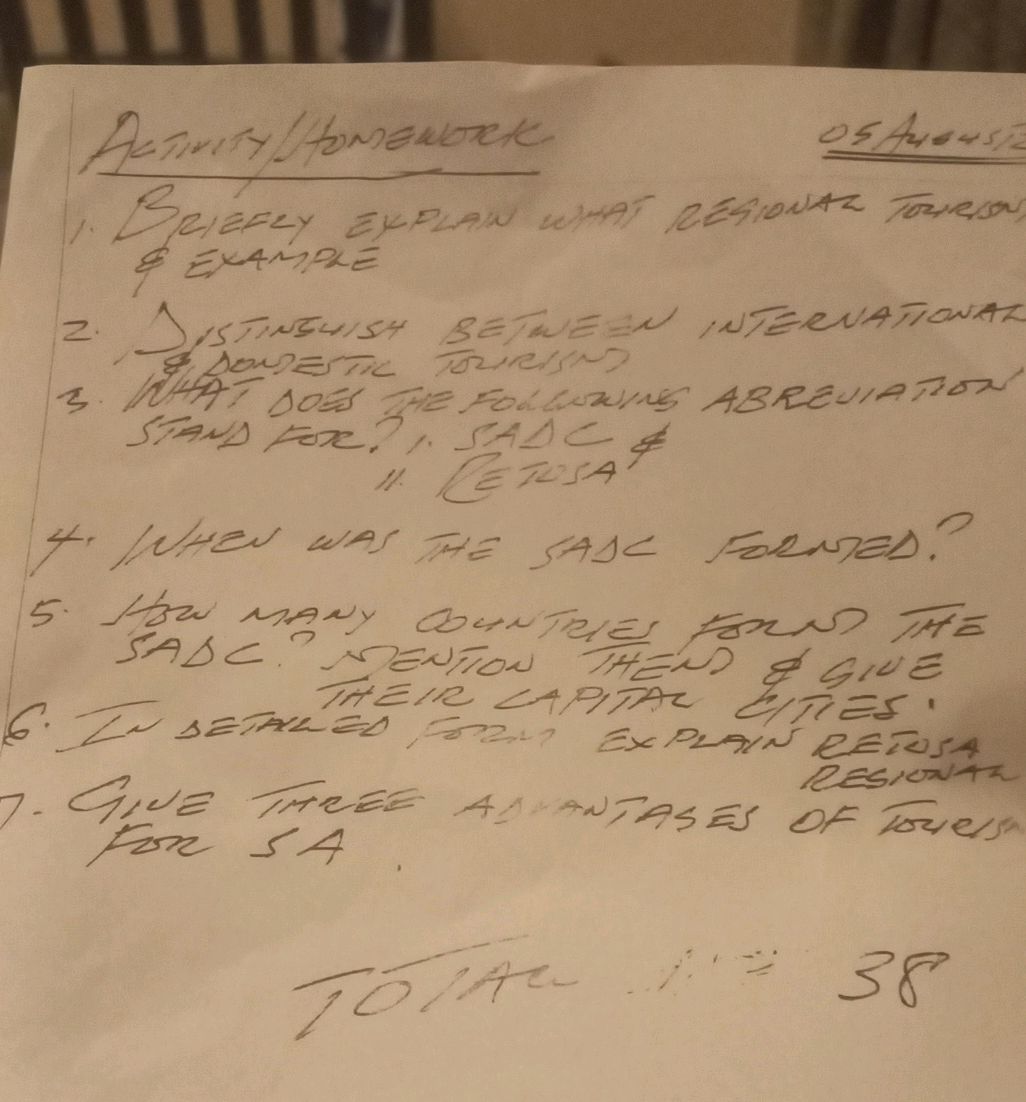 ACTIVITY/HOMEWORK
05 AUGUST
1. BRIEFLY EXPLAIN WHAT REGIONAL TOURISM
& EXAMPLE
2. DISTINGUISH BETWEEN INTERNATIONAL
& DOMESTIC TOURISM
3. WHAT DOES THE FOLLOWING ABREVIATION
STAND FOR? I. SADC &
II. RETOSA
4. WHEN WAS THE SADC FORMED?
5. HOW MANY COUNTRIES FORM THE
SADC? MENTION THEM & GIVE
THEIR CAPITAL CITIES.
6. IN DETAILED FORM EXPLAIN RETOSA
REGIONAL
7. GIVE THREE ADVANTAGES OF TOURISM
FOR SA.
TOTAL 38